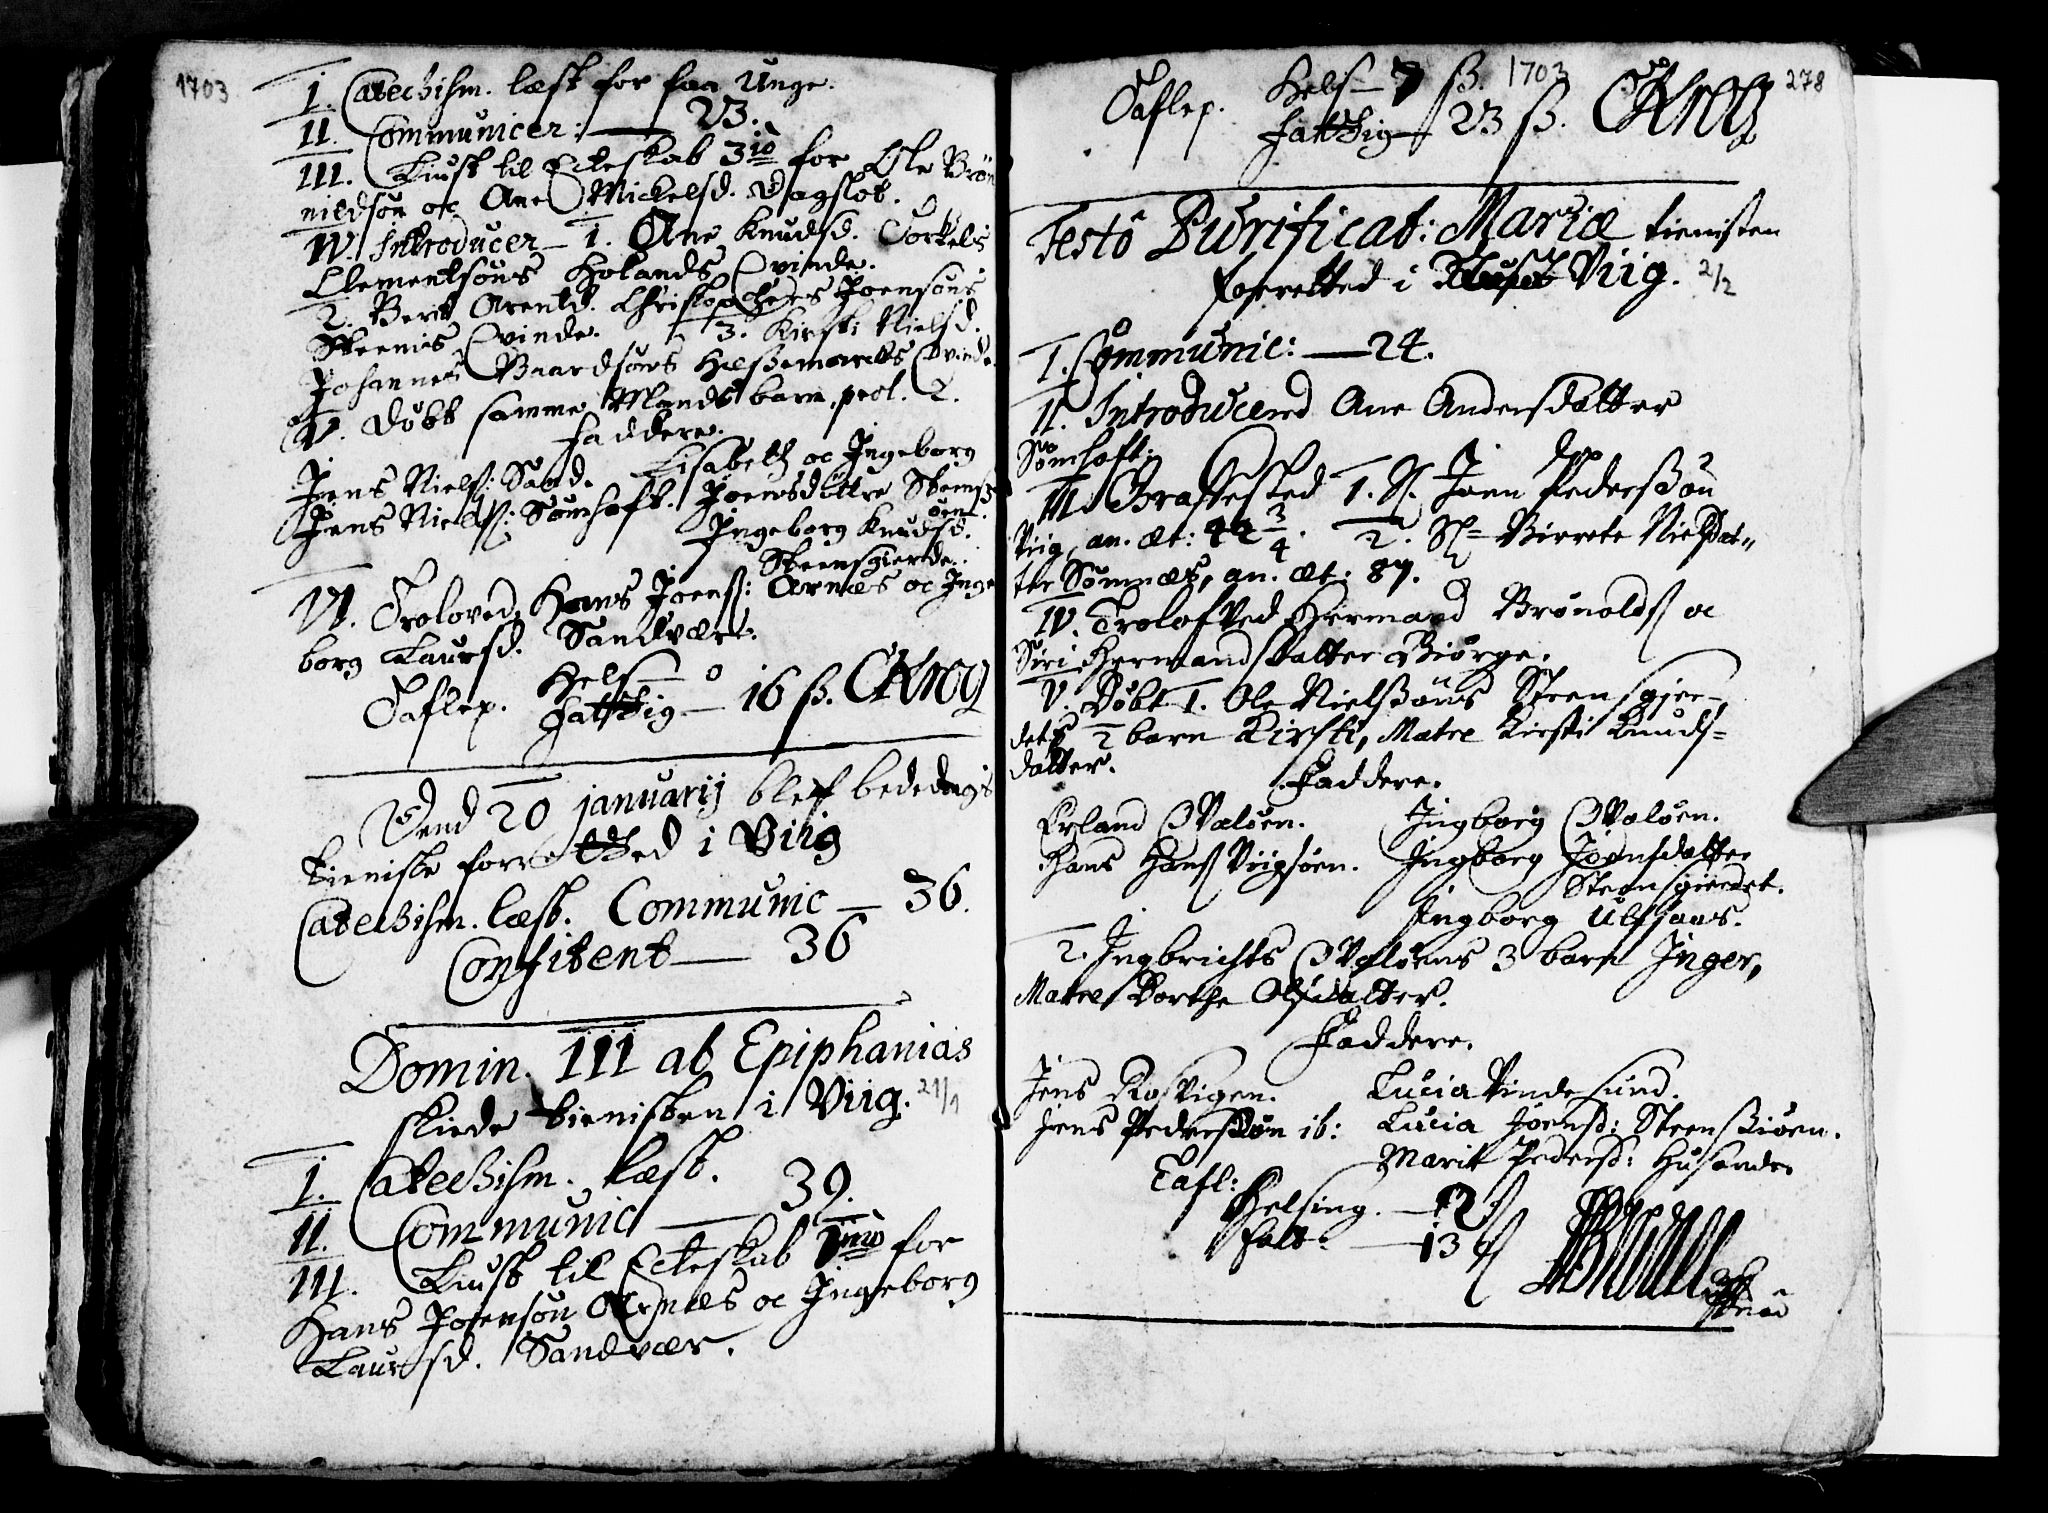 1703
I. Catechism. læst for faa Unge.
II. Communicer: — 23.
III. Liust til Ecteskab 3io for Ole Brøn
nildsøn oc Ane Mickelsd. Dagslot.
IV. Introducer — 1. Ane Knudsd. Torkels
Clementsøns Holands Qvinde.
2. Berit Arentd. Christophers Joensøns
Steenes Qvinde. 3. Kirsti Nielsd.
Johannes Baardsøns Qvinde.
V. Døbt samme Mands barn, 2.
Faddere.
Jens Niels: Sand. Lisabeth oc Ingeborg
Jens Niels: Sømhoft. Joensdøttre Steens
øen.
Ingeborg Knudsd.
Steensgierde.
VI. Troloved Hans Joens: Arnæs oc Inge
borg Laursd. Sandvær.
Taflep. Hels — 0
Fattig — 16 ß. CKrog
Dend 20 januarij blef bededags
tieniste forretthed i Viig
Catechism. læst. Communic — 36.
Confitent — 36
Domin. III ab Epiphanias
skiede tienisten i Viig. 21/1
I. Catechism. læst.
II. Communic — 39.
III. Liust til Ecteskab 1mo for
Hans Joensøn Arnæs oc Ingeborg
Laursd. Sandvær.
1703 278
Taflep. Hels — 7 ß.
Fattig — 23 ß. CKrog
Festo Purificat: Mariæ tienisten
forretted i Viig. 2/2
I. Communic: — 24.
II. Introducered Ane Andersdatter
Sømhoft:
III. Graffested 1. S. Joen Pedersøn
Viig, an. æt: 42 3/4. 2. Sl= Birrete Nielsdat„
ter Sømnæs, an. æt: 87.
IV. Troloffved Hermand Brønolds oc
Siri Hermandsdatter Biørge.
V. Døbt 1. Ole Nielsøns Steensgier-
dets 2 barn Kirsti, Matre Kirsti Knuds=
datter.
Faddere.
Erland Qvaløen. Ingborg Qvaløen.
Hans Hans Viigsøen. Ingborg Joensdatter
Steensgierdet.
Ingborg
2. Ingbrichts Qvaløens 3 barn Inger,
Matre Dorthe Olsdatter.
Faddere.
Jens Rosvigen. Lucia Vindesund.
Jens Pedersøn ib: Lucia Joensd: Steensøen.
Marit Pedersd: Husande
Tafl:
Helsing. — 12 ß
Fatt: — 13 ß